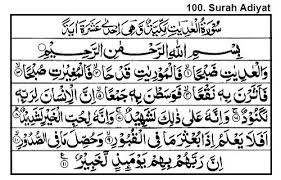 100. Surah Adiyat
سُوْرَةُ الْعٰدِيٰتِ مَكِّيَّةٌ وَّهِيَ اِحْدٰى عَشْرَةَ اٰيَةً
بِسْمِ اللّٰهِ الرَّحْمٰنِ الرَّحِيْمِ
وَالْعٰدِيٰتِ ضَبْحًا ۙ فَالْمُوْرِيٰتِ قَدْحًا ۙ فَالْمُغِيْرٰتِ صُبْحًا ۙ
فَاَثَرْنَ بِهٖ نَقْعًا ۙ فَوَسَطْنَ بِهٖ جَمْعًا ۙ اِنَّ الْاِنْسَانَ لِرَبِّهٖ
لَكَنُوْدٌ ۚ وَاِنَّهٗ عَلٰى ذٰلِكَ لَشَهِيْدٌ ۚ وَاِنَّهٗ لِحُبِّ الْخَيْرِ لَشَدِيْدٌ ؕ
اَفَلَا يَعْلَمُ اِذَا بُعْثِرَ مَا فِى الْقُبُوْرِ ۙ وَحُصِّلَ مَا فِى الصُّدُوْرِ ۙ
اِنَّ رَبَّهُمْ بِهِمْ يَوْمَئِذٍ لَّخَبِيْرٌ